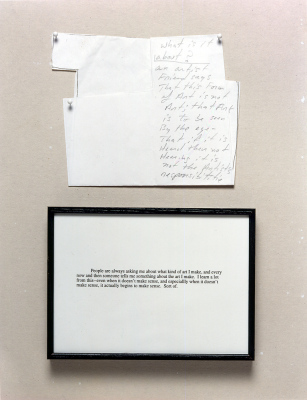 What is it
About?
An artist
Friend says
That this form
of Art is not
Art; that Art
is to be seen
By the eye-
That if it is
Heard then not
it is
not the
responsibility
People are always asking me about what kind of art I make, and every
now and then someone tells me something about the art I make. I learn a lot
from this--even when it doesn't make sense, and especially when it doesn't
make sense, it actually begins to make sense. Sort of.